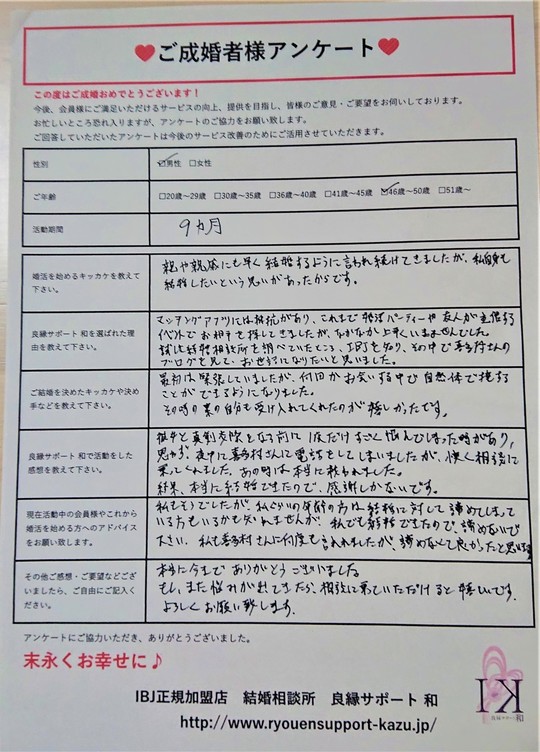 ❤ご成婚者様アンケート❤
この度はご成婚おめでとうございます！
今後、会員様にご満足いただけるサービスの向上、提供を目指し、皆様のご意見・ご要望をお伺いしております。
お忙しいところ恐れ入りますが、アンケートのご協力をお願い致します。
ご回答していただいたアンケートは今後のサービス改善のためにご活用させていただきます。
性別
☑男性 □女性
ご年齢
□20歳～29歳 □30歳～35歳 □36歳～40歳 □41歳～45歳 ☑46歳～50歳 □51歳～
活動期間
9ヵ月
婚活を始めるキッカケを教えて
下さい。
親や親族にも早く結婚するように言われ続けてきましたが、私自身も
結婚したいという思いがあったからです。
良縁サポート 和を選ばれた理
由を教えて下さい。
マッチングアプリには抵抗があり、これまで婚活パーティーや友人が主催する
イベントでお相手を探してきましたが、なかなか上手くいきませんでした。
試しに結婚相談所を調べていたところ、IBJを知り、その中で喜多村さんの
ブログを見て、お世話になりたいと思いました。
ご結婚を決めたキッカケや決め
手などを教えて下さい。
最初は緊張していましたが、何回かお会いする中で自然体で接する
ことができるようになりました。
その時の素の自分も受け入れてくれたのが嬉しかったです。
良縁サポート 和で活動をした
感想を教えて下さい。
相手と真剣交際となる前に1度だけすごく悩んでしまった時があり、
思わず、夜中に喜多村さんに電話をしてしまいましたが、快く相談に
乗ってくれました。あの時は本当に救われました。
結果、本当に結婚できたので、感謝しかないです。
現在活動中の会員様やこれから
婚活を始める方へのアドバイス
をお願い致します。
私もそうでしたが、私ぐらいの年齢の方は結婚に対して諦めてしまって
いる方もいるかも知れませんが、私でも結婚できたので、諦めないで
下さい。私も喜多村さんに何度も言われましたが、諦めなくて良かったと思います
その他ご感想・ご要望などござ
いましたら、ご自由にご記入く
ださい。
本当に今までありがとうございました
もし、また悩みが出てきたら、相談に乗っていただけると嬉しいです。
よろしくお願い致します。
アンケートにご協力いただき、ありがとうございました。
末永くお幸せに♪
IBJ正規加盟店 結婚相談所 良縁サポート 和
http://www.ryouensupport-kazu.jp/
良縁サポート和